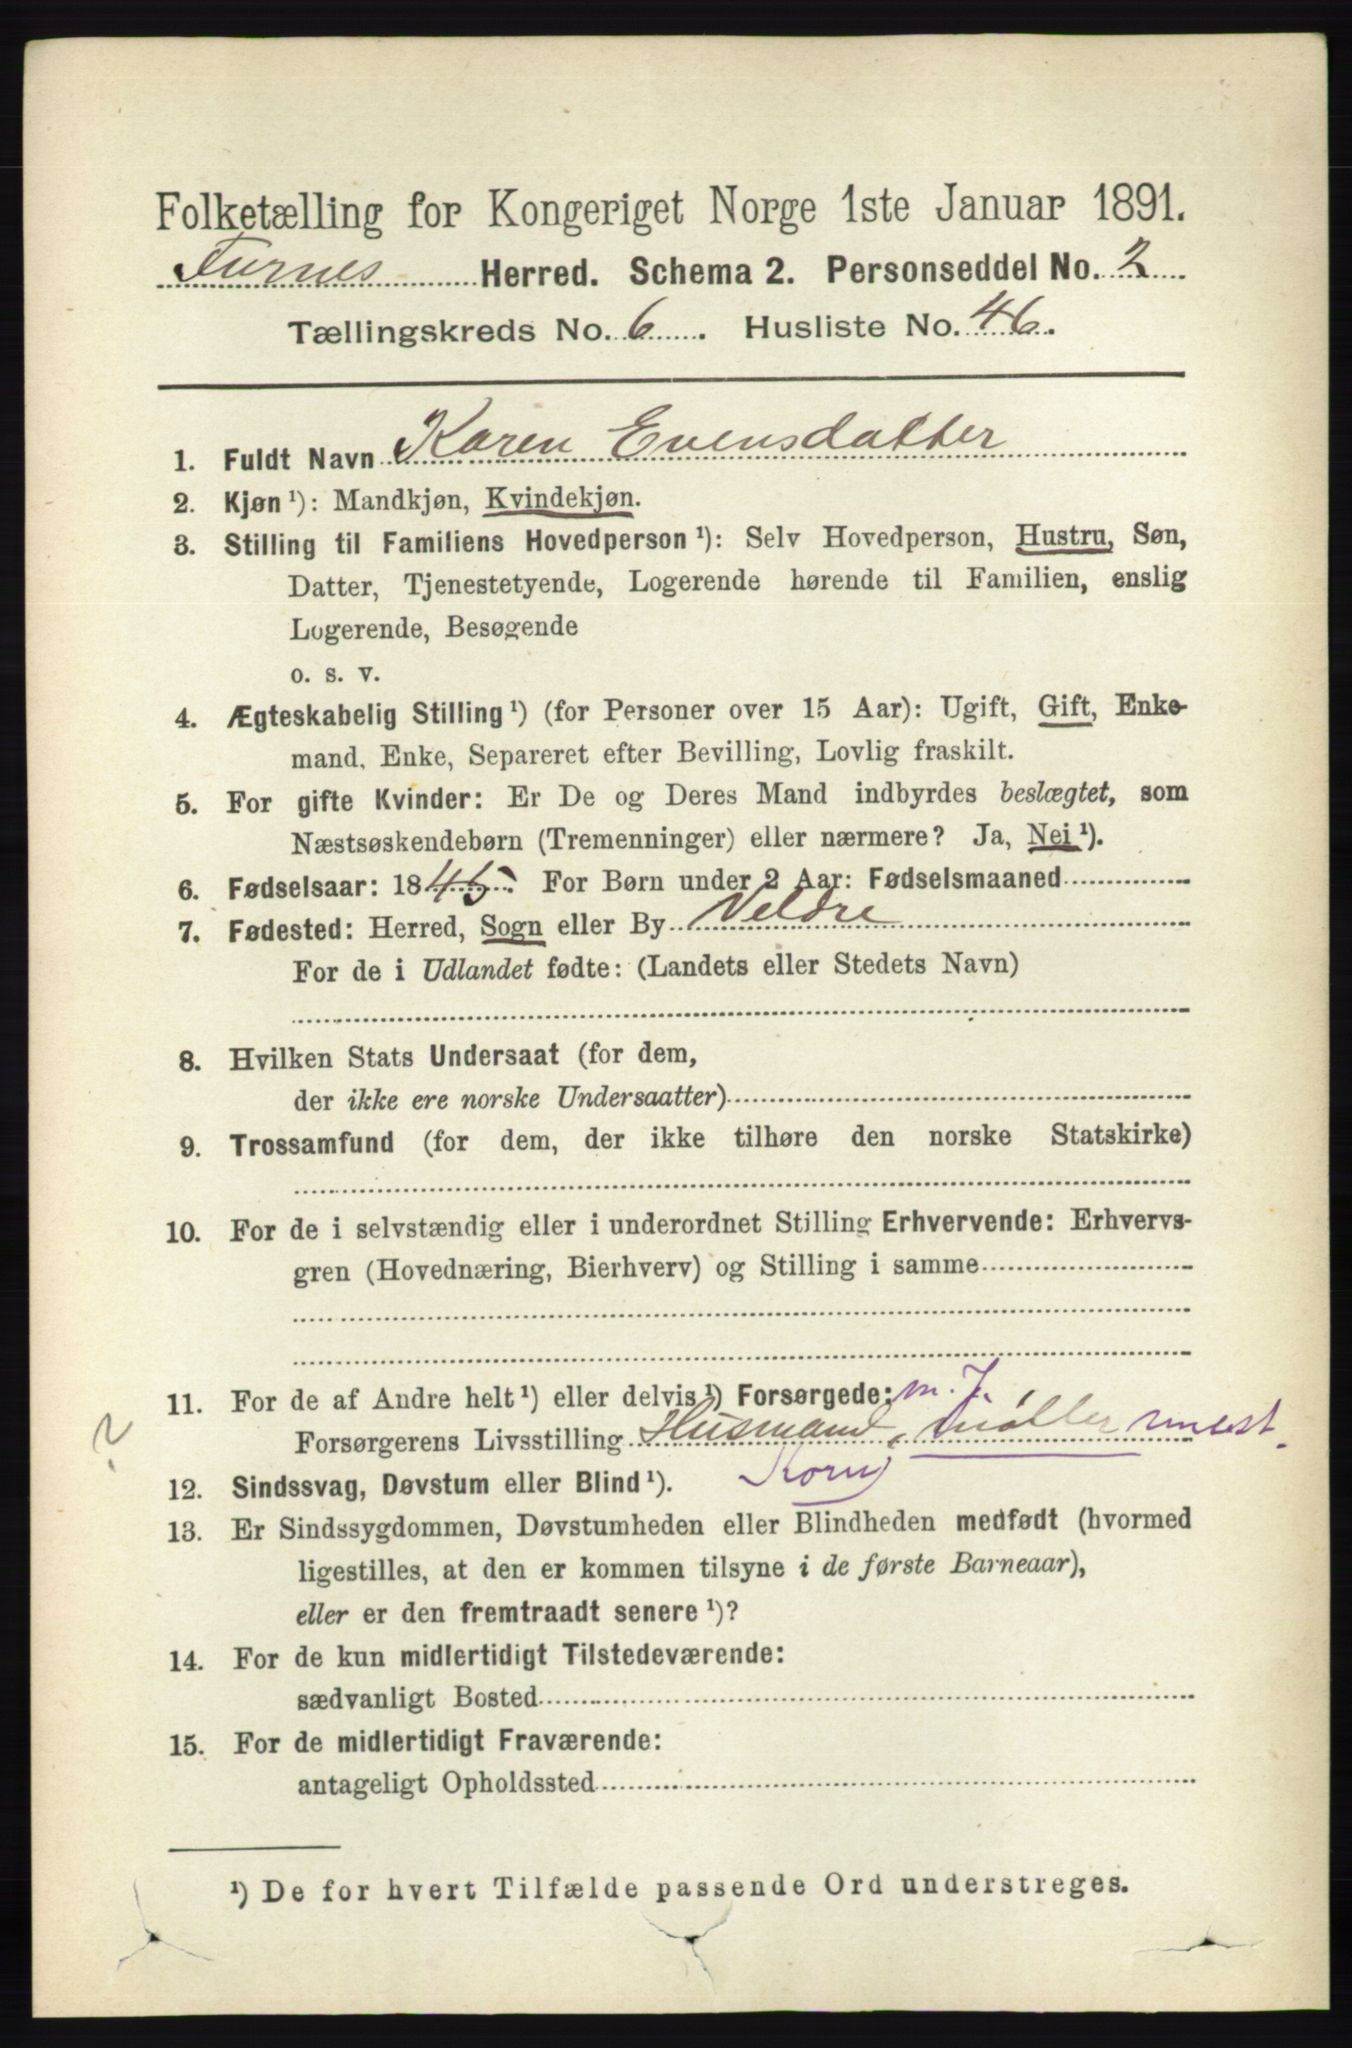 Folketælling for Kongeriget Norge 1ste Januar 1891.
Furnes Herred. Schema 2. Personseddel No. 2
Tællingskreds No. 6. Husliste No. 46.
1. Fuldt Navn Karen Evensdatter
2. Kjøn ¹): Mandkjøn, Kvindekjøn.
3. Stilling til Familiens Hovedperson ¹): Selv Hovedperson, Hustru, Søn,
Datter, Tjenestetyende, Logerende hørende til Familien, enslig
Logerende, Besøgende
o. s. v.
4. Ægteskabelig Stilling ¹) (for Personer over 15 Aar): Ugift, Gift, Enke-
mand, Enke, Separeret efter Bevilling, Lovlig fraskilt.
5. For gifte Kvinder: Er De og Deres Mand indbyrdes beslægtet, som
Næstsøskendebørn (Tremenninger) eller nærmere? Ja, Nei ¹).
6. Fødselsaar: 1845. For Børn under 2 Aar: Fødselsmaaned
7. Fødested: Herred, Sogn eller By Veldre
For de i Udlandet fødte: (Landets eller Stedets Navn)
8. Hvilken Stats Undersaat (for dem,
der ikke ere norske Undersaatter)
9. Trossamfund (for dem, der ikke tilhøre den norske Statskirke)
10. For de i selvstændig eller i underordnet Stilling Erhvervende: Erhvervs-
gren (Hovednæring, Bierhverv) og Stilling i samme
11. For de af Andre helt ¹) eller delvis ¹) Forsørgede: m. J.
Forsørgerens Livsstilling Husmand, møller
?
Korn
12. Sindssvag, Døvstum eller Blind ¹).
13. Er Sindssygdommen, Døvstumheden eller Blindheden medfødt (hvormed
ligestilles, at den er kommen tilsyne i de første Barneaar),
eller er den fremtraadt senere ¹)?
14. For de kun midlertidigt Tilstedeværende:
sædvanligt Bosted
15. For de midlertidigt Fraværende:
antageligt Opholdssted
¹) De for hvert Tilfælde passende Ord understreges.